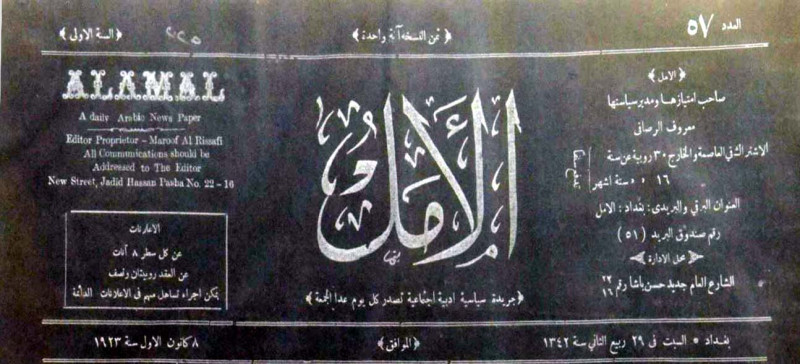 العدد ٥٧
﴿ ثمن النسخه آنة واحدة ﴾
﴿ السنة الاولى ﴾
﴿ الامل ﴾
صاحب امتيازها ومدير سياستها
معروف الرصافي
الاشتراك في العاصمة والخارج ٣٠ روبية عن سنة
١٦ » » ستة اشهر
العنوان البرقي والبريدى : بغداد : الامل
رقم صندوق البريد (٥١)
﴿ محل الادارة ﴾
الشارع العام جديد حسن باشا رقم ٢٢/١٦
الأمل
﴿ جريدة سياسية ادبية اجتماعية تصدر كل يوم عدا الجمعة ﴾
ALAMAL
A daily Arabic News Paper
Editor Proprietor - Maroof Al Rissafi
All Communications should be
Addressed to The Editor
New Street, Jadid Hassan Pasha No. 22-16
الاعلانات
عن كل سطر ٨ آنات
عن العقد روبيتان ونصف
يمكن اجراء تساهل مهم فى الاعلانات الدائمة
بغداد * السبت فى ٢٩ ربيع الثاني سنة ١٣٤٢
﴿ الموافق ﴾
٨ كانون الاول سنة ١٩٢٣